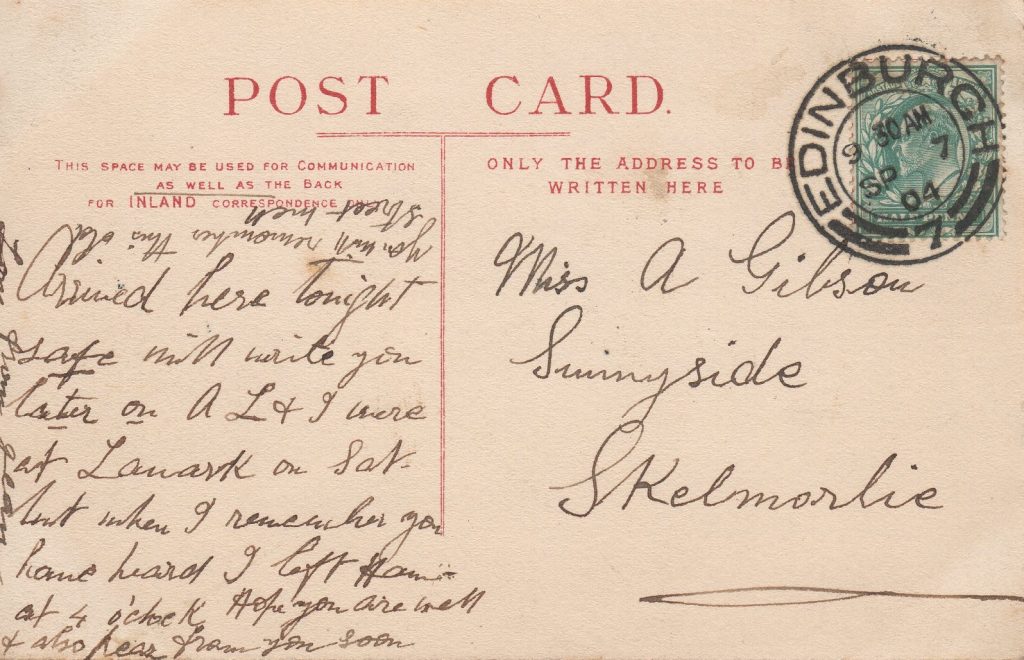 POST CARD.
THIS SPACE MAY BE USED FOR COMMUNICATION
AS WELL AS THE BACK
FOR INLAND CORRESPONDENCE ONLY
ONLY THE ADDRESS TO BE
WRITTEN HERE
EDINBURGH
9 30 AM 7
SP 04
7
You will remember this old
street
Arrived here tonight
safe will write you
later on A L & I were
at Lanark on Sat-
but when I remember you
have heard I left Ham-
at 4 o'clock Hope you are well
& also hear from you soon
Love from Jean
Miss A Gibson
Sunnyside
Skelmorlie